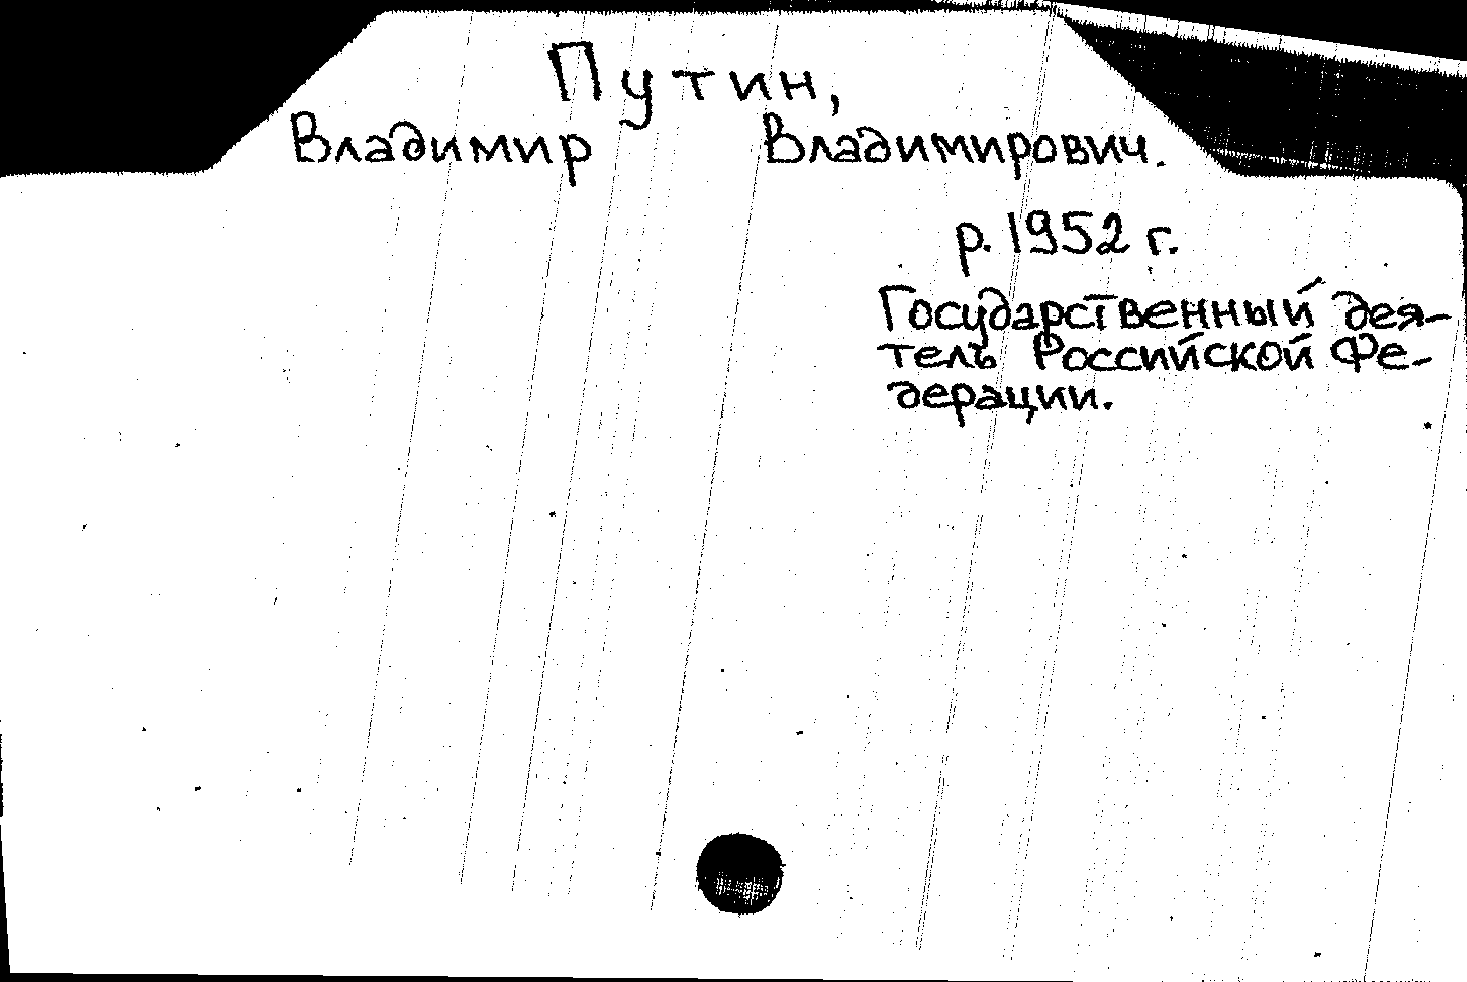 Путин,
Владимир Владимирович.
р. 1952 г.
Государственный дея-
тель Российской Фе-
дерации.